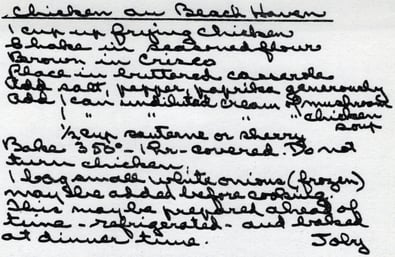 Chicken au Beach Haven
1 cup up frying chicken
Shake in seasoned flour
Brown in Crisco
Place in buttered casserole
Add salt, pepper, paprika generously
Add 1 can undiluted cream of mushroom
1 " " " " chicken
soup
1/2 cup sauterne or sherry
Bake 350°- 1 hr - covered. Do not
turn chicken.
1 bag small white onions (frozen)
may be added before cooking.
This may be prepared ahead of
time - refrigerated - and baked
at dinner time. Joby